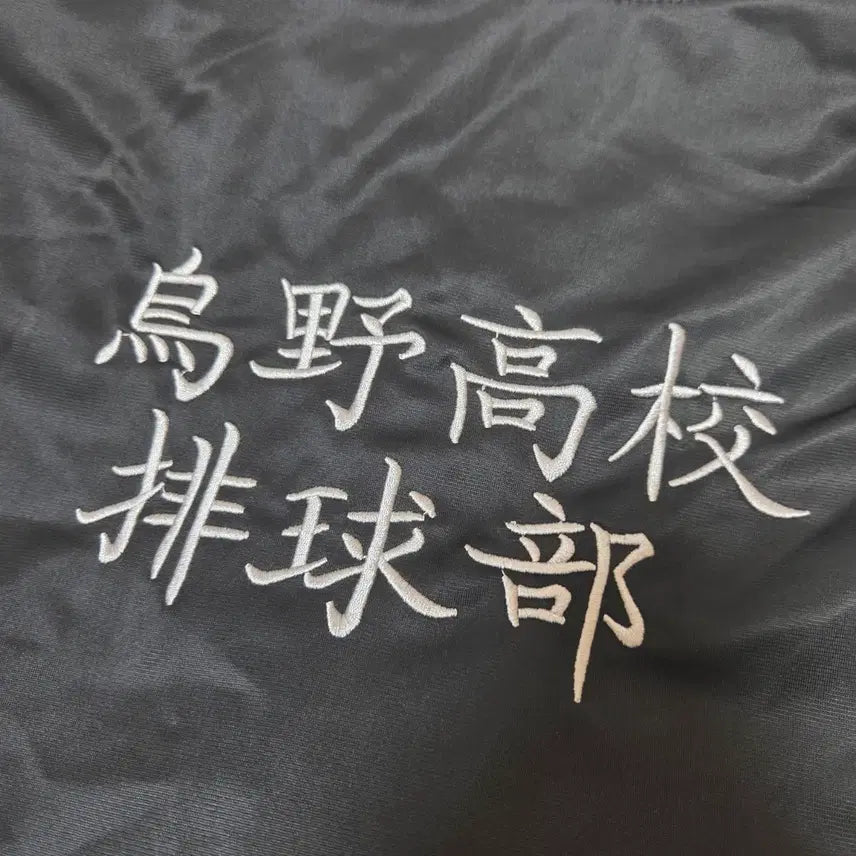 烏野高校
排球部